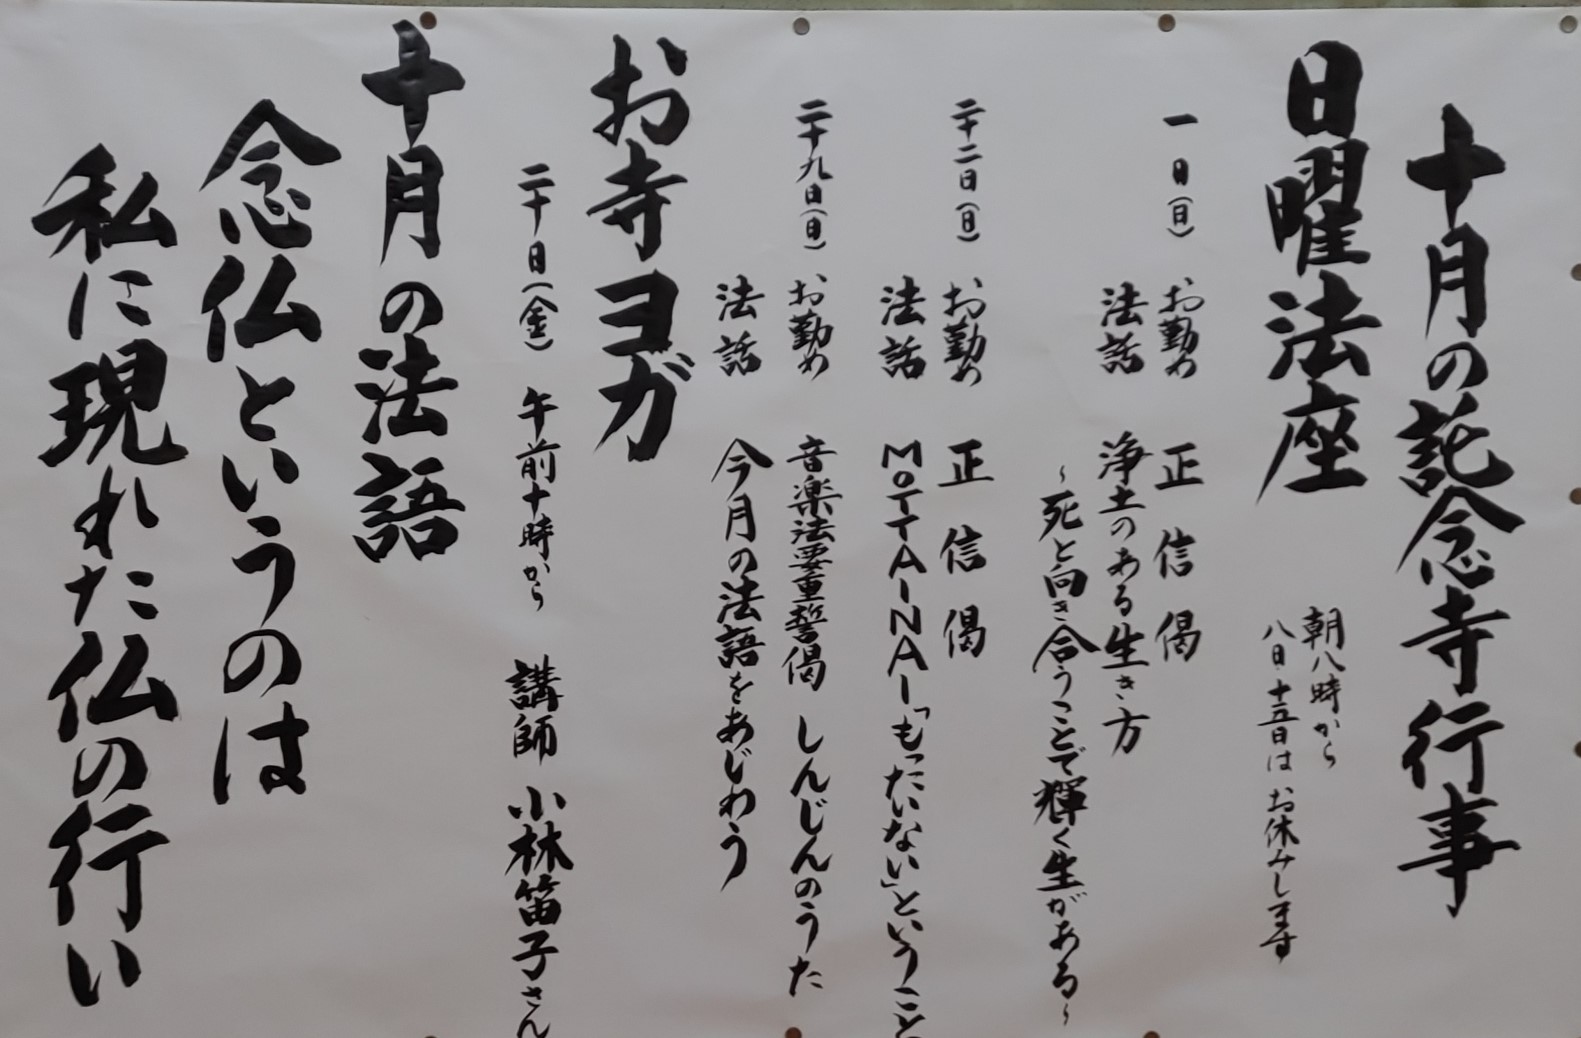 十月の託念寺行事
日曜法座
朝八時から
八日・十五日は お休みします
一日(日) お勤め 正信偈
法話 浄土のある生き方
~死と向き合うことで輝く生がある~
二十二日(日) お勤め 正信偈
法話 MOTTAINAI「もったいない」ということ
二十九日(日) お勤め 音楽法要重誓偈 しんじんのうた
法話 今月の法語をあじわう
お寺ヨガ
二十日(金) 午前十時から 講師 小林笛子さん
十月の法語
念仏というのは
私に現れた仏の行い